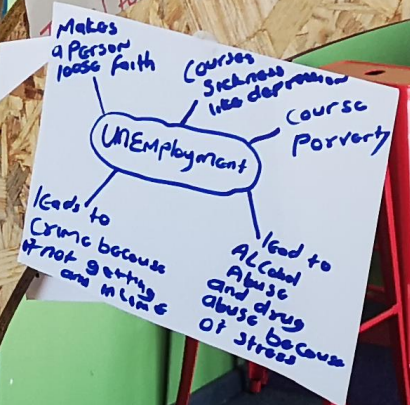 Makes
a Person
loose Faith
Courses
Sickness
like depression
Course
Porverty
UNEmployment
leads to
Crime because
of not getting
and
lead to
ALcohol
Abuse
and drug
abuse because
of stress